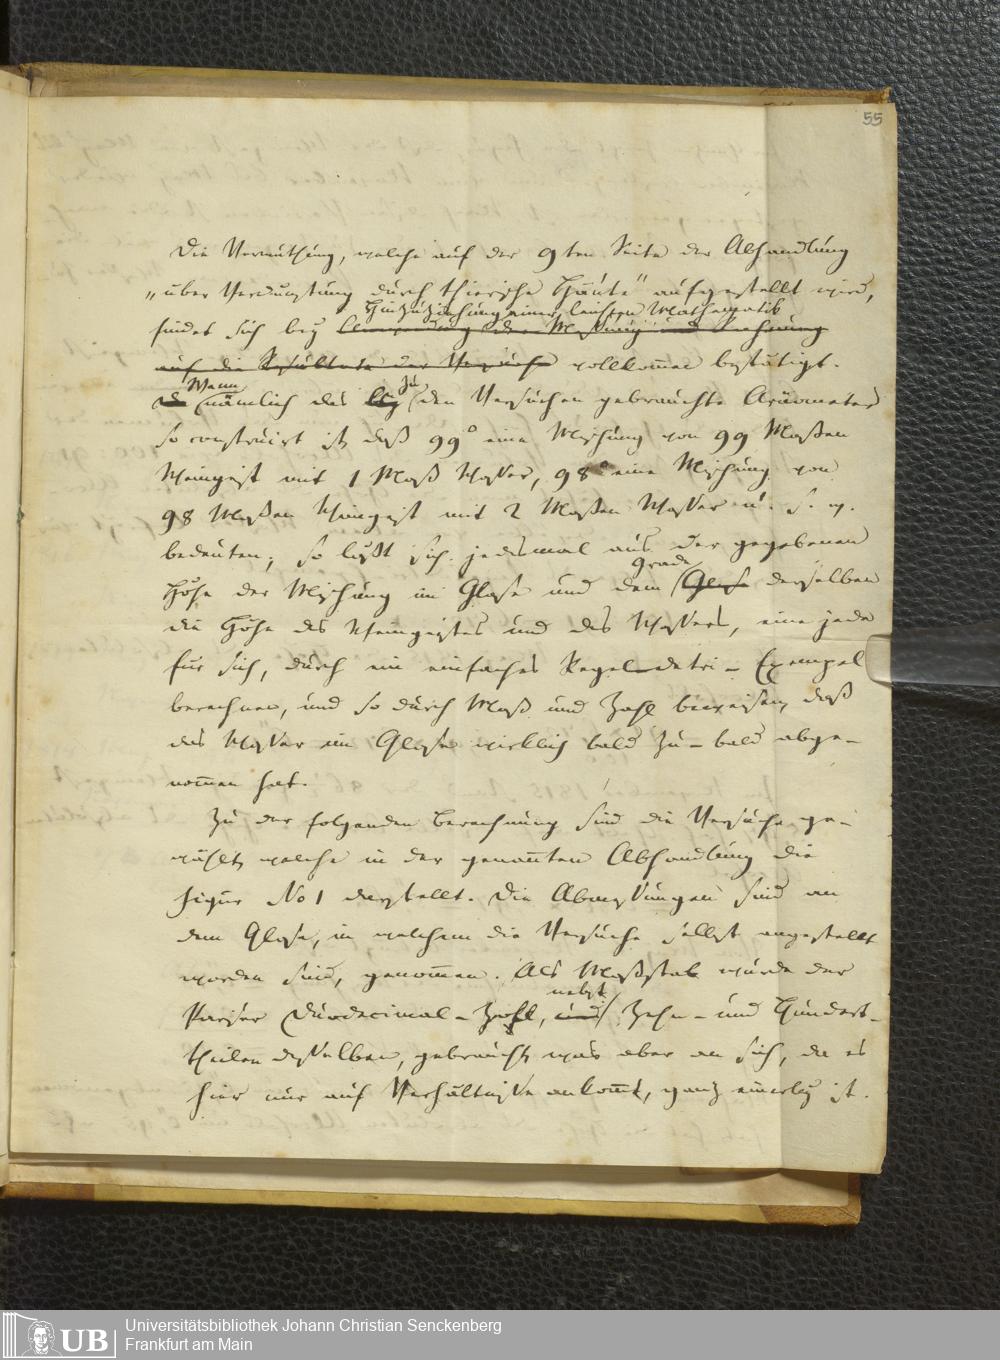 55
Die Vermuthung, welche auf der 9ten Seite der Abhandlung
„über Verdunstung durch thierische Häute“ aufgestellt wird,
Hinzuziehung einer leichten Mathematik
findet sich bey Anwendung der Meßung und Rechnung
auf die Resultate der Versuche vollkom̅en bestätigt.
Wenn zu
Da nämlich das bey den Versuchen gebrauchte Aräometer
so construirt ist, daß 99° eine Mischung von 99 Maßen
Weingeist mit 1 Maß Waßer, 98° eine Mischung von
98 Maßen Weingeist mit 2 Maßen Waßer u. s. w.
bedeuten; so läßt sich jedesmal aus der gegebenen
Grade
Höhe der Mischung im Glase und dem Glase derselben
die Höhe des Weingeistes und des Waßers, eine jede
für sich, durch ein einfaches Regel-detri-Exempel
berechnen, und so durch Maß und Zahl beweisen, daß
das Waßer im Glase wirklich bald zu- bald abge-
nom̅en hat.
Zu der folgenden Berechnung sind die Versuche ge-
wählt, welche in der genan̅ten Abhandlung die
Figur No 1 darstellt. Die Abmeßungen sind an
dem Glase, in welchem die Versuche selbst angestellt
worden sind, genom̅en. Als Maßstab wurde der
nebst
Pariser Duodecimal-Zoll, und Zehn- und Hundert-
theilen desselben, gebraucht, was aber an sich, da es
hier nur auf Verhältniße ankom̅t, ganz einerley ist.
UB
Universitätsbibliothek Johann Christian Senckenberg
Frankfurt am Main